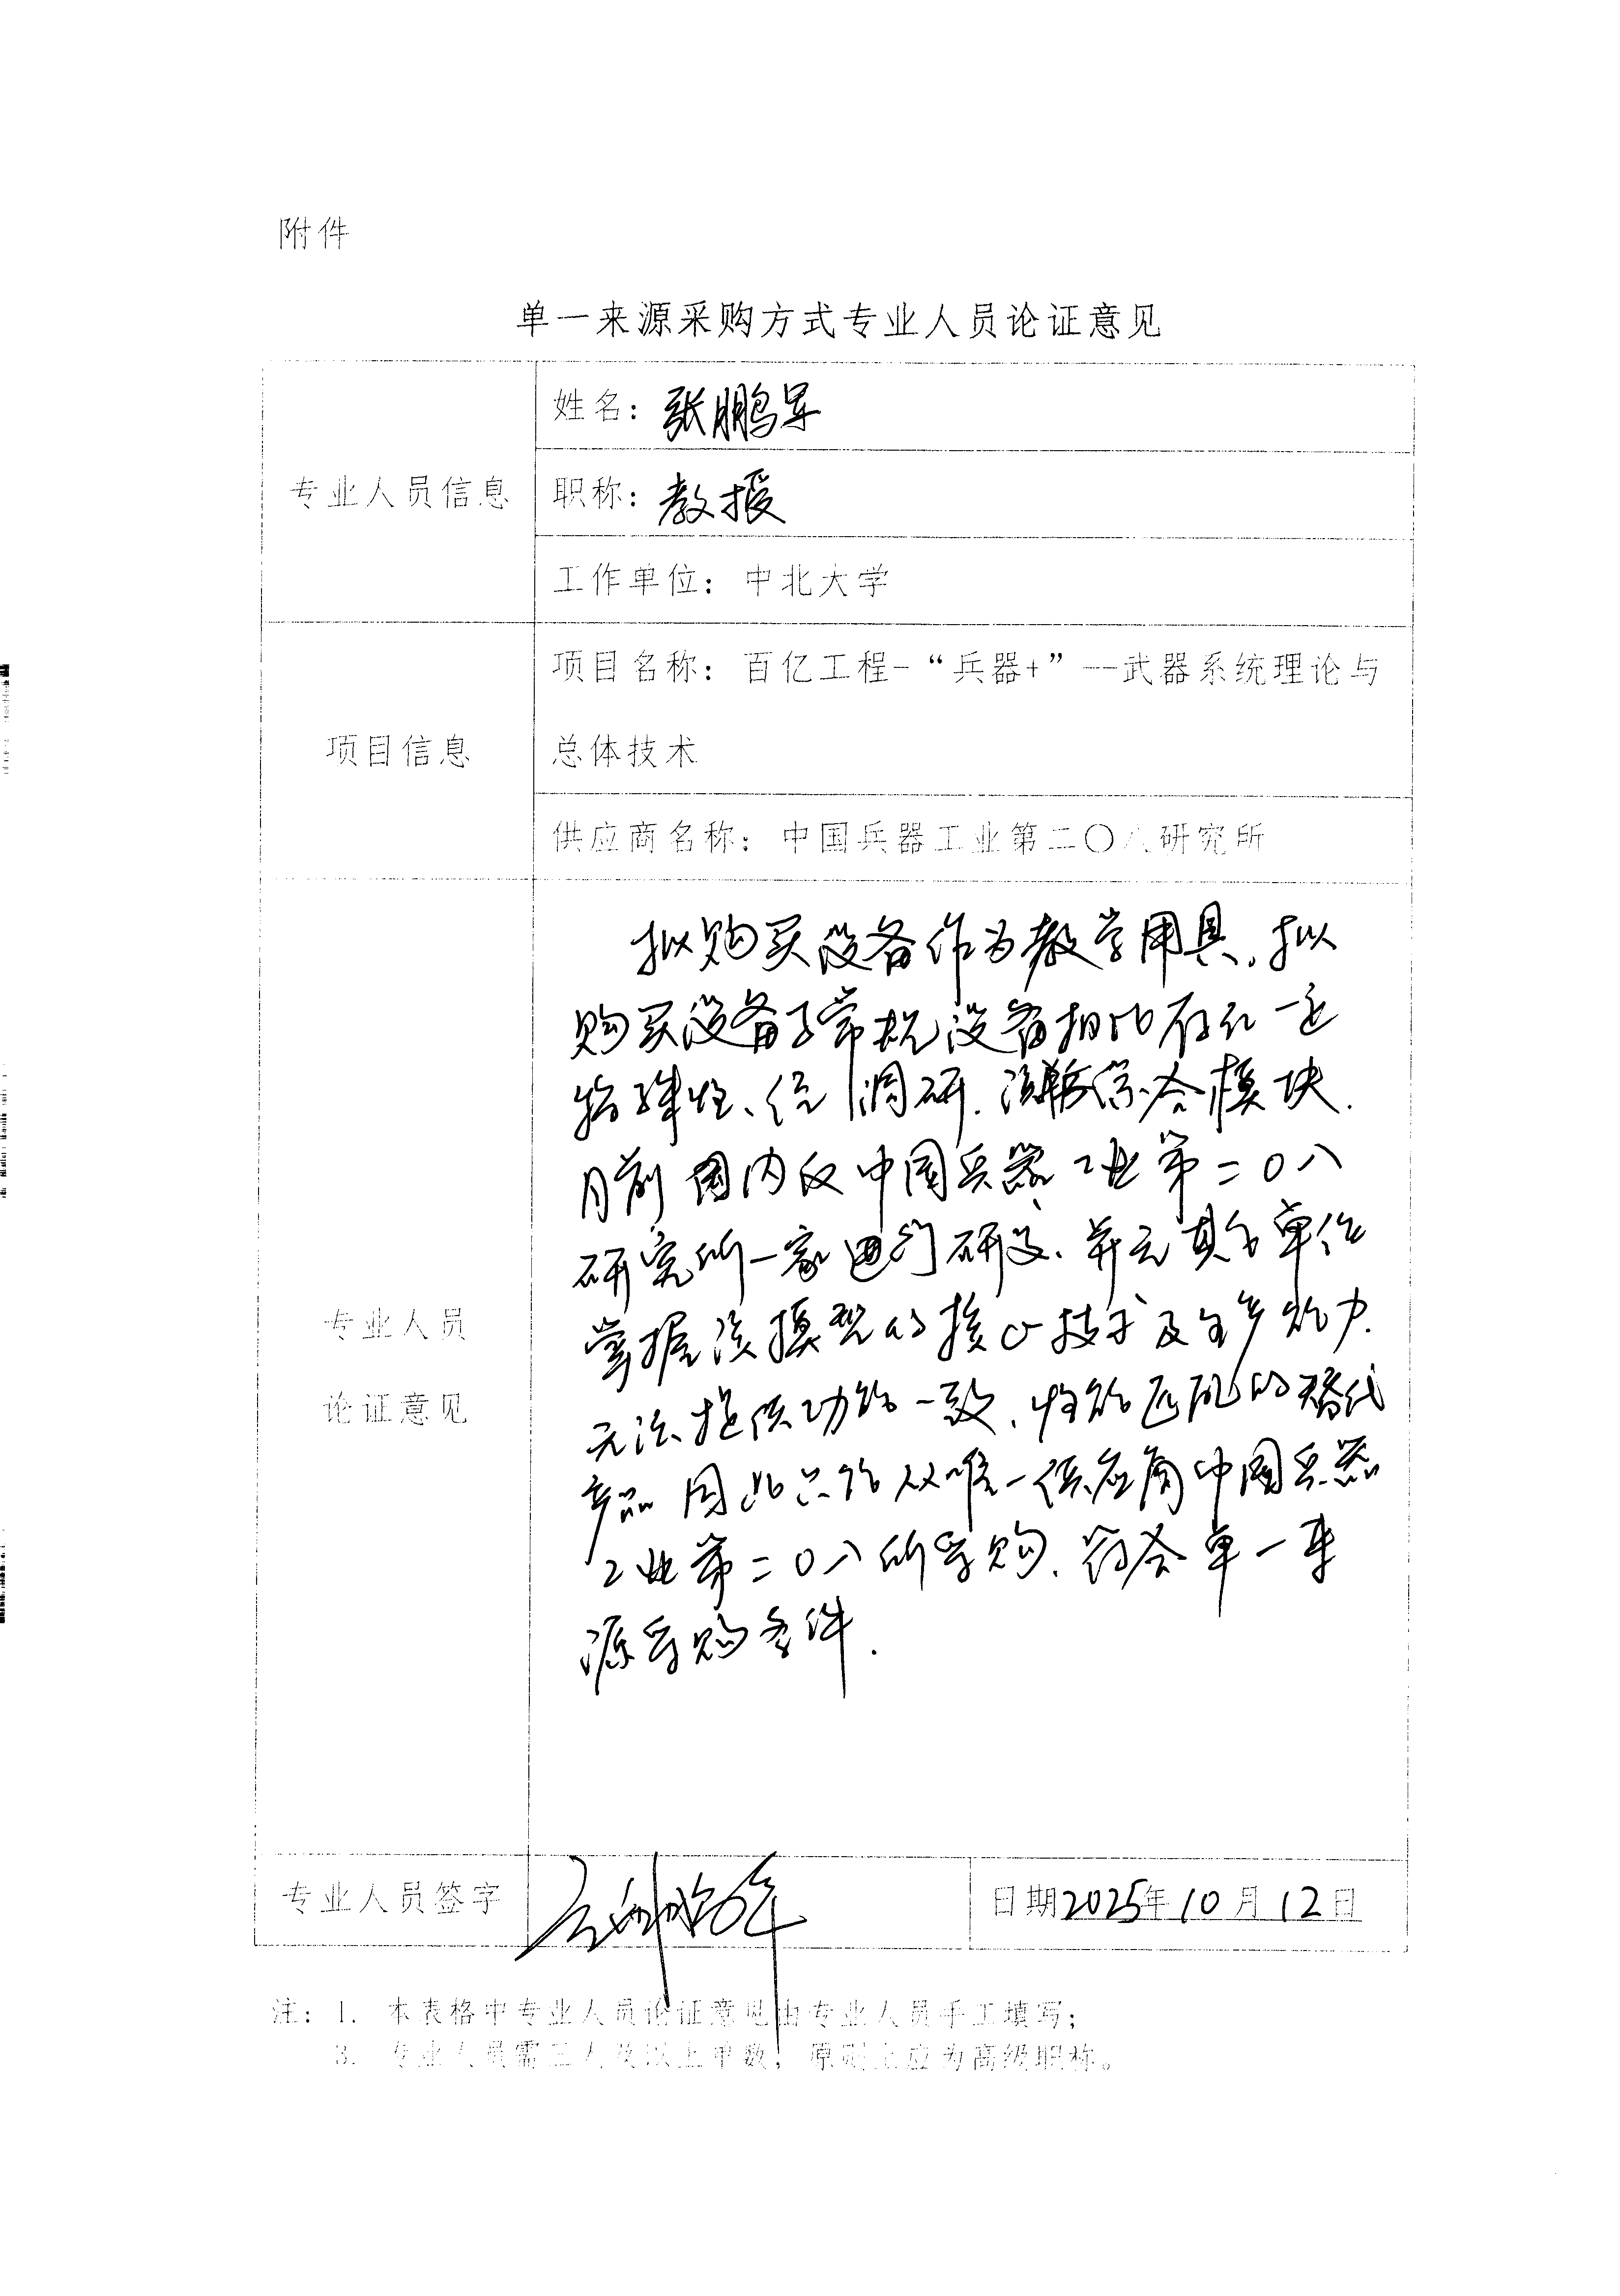 附件
单一来源采购方式专业人员论证意见
专业人员信息
姓名：张鹏军
职称：教授
工作单位：中北大学
项目信息
项目名称：百亿工程-“兵器+”--武器系统理论与
总体技术
供应商名称：中国兵器工业第二〇八研究所
专业人员
论证意见
拟购买设备作为教学用具，拟
购买设备与常规设备相比存在一定
特殊性、经调研，综合模块，
目前国内仅中国兵器工业第二〇八
研究所一家进行研发，并无其他单位
掌握该模型的核心技术及生产能力，
无法提供功能一致、性能匹配的替代
产品 因此只能从唯一供应商中国兵器
工业第二〇八所采购，符合单一来
源采购条件.
专业人员签字
日期2025年10月12日
注：1. 本表格中专业人员论证意见由专业人员手工填写；
3. 专业人员需三人及以上单数，原则上应为高级职称。